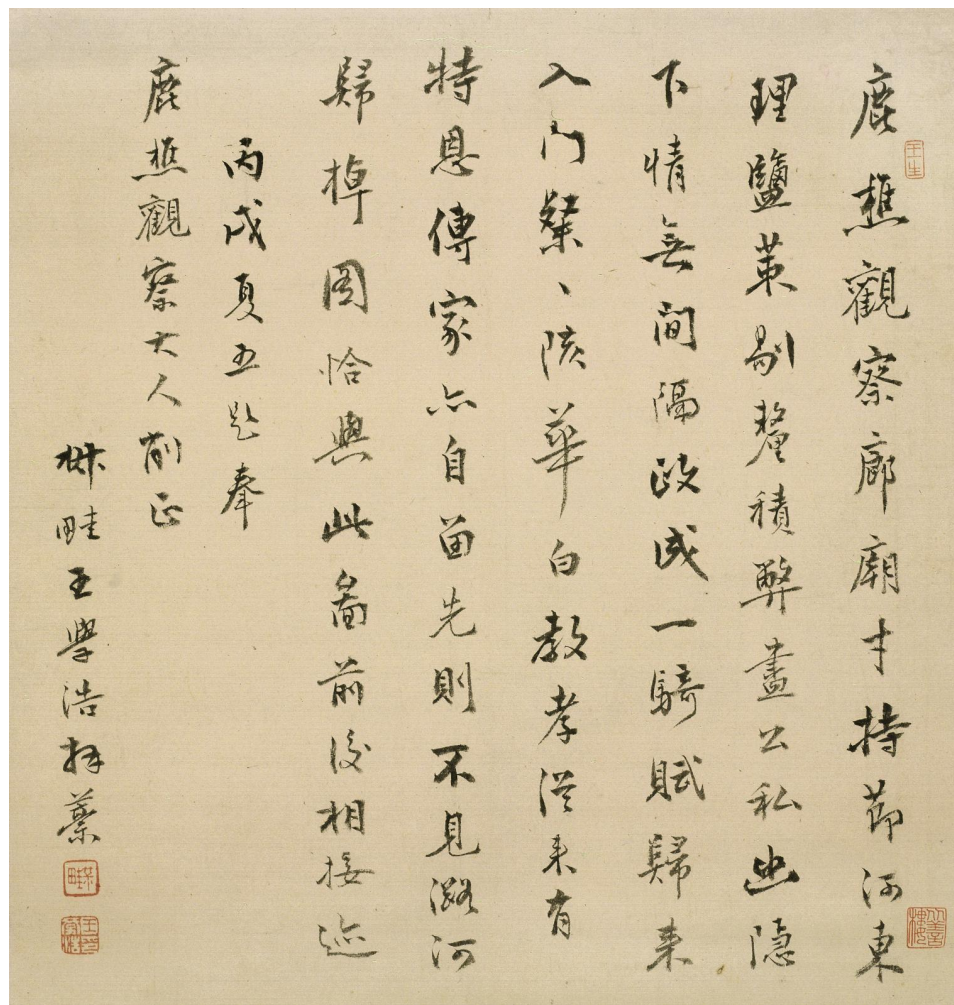 鹿樵觀察廊廟才持節河東
理鹽筴剔釐積弊盡公私幽隱
下情無間隔政成一騎賦歸來
入門粲、陔華白教孝從來有
特恩傳家亦自留先則不見潞河
歸棹圖恰與此圖前後相接迹
丙戌夏五題奉
鹿樵觀察大人削正
椒畦王學浩拜藁